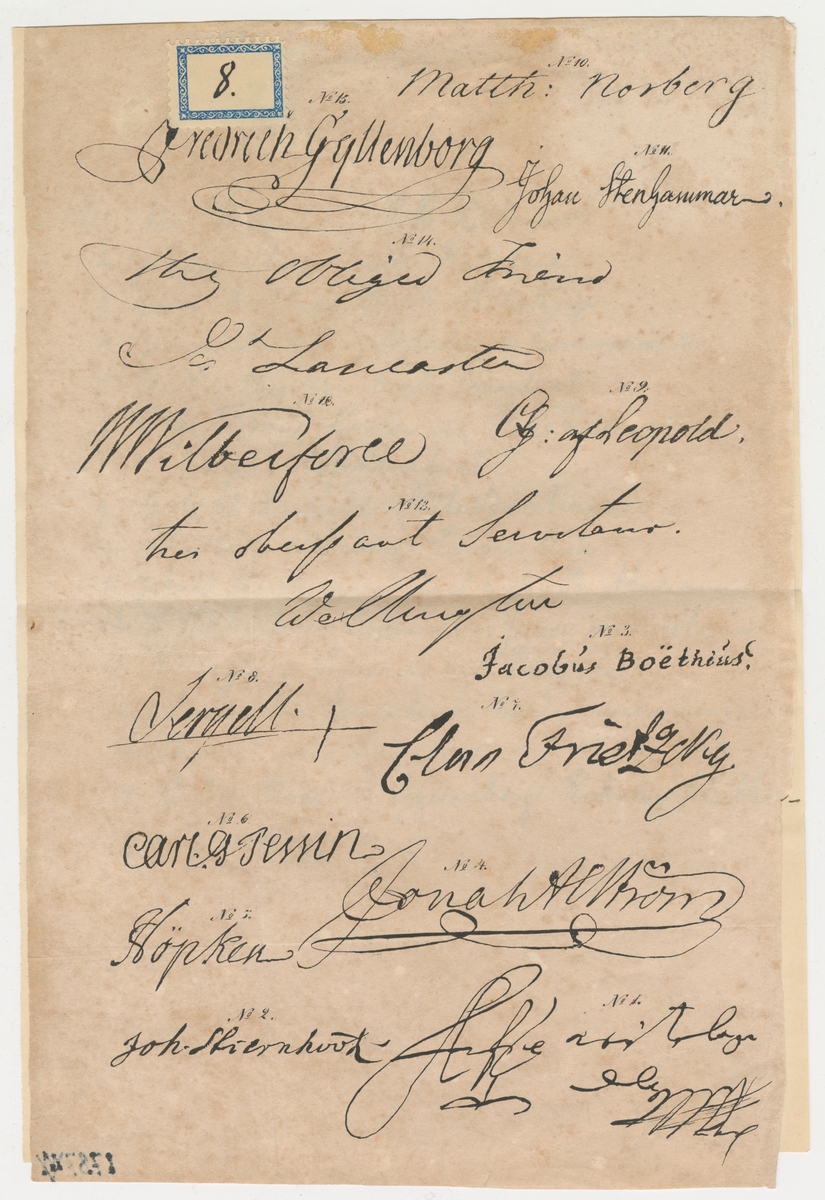 8.
No 10.
Matth: Norberg
No 15.
Fredrich Gyllenborg
No 11.
Johan Stenhammar.
No 14.
thy Obliged Friend
Jos Lancaster
No 16.
WWilberforce
No 9.
CG: af Leopold.
No 13.
tres obeissant Serviteur.
Wellington
No 3.
Jacobus Boëthius.
No 8.
Sergell.
No 7.
Clas Frietzcky
No 6
Carl. G Tessin
No 4.
Jonas Alström
No 5.
Höpken
No 2.
Joh. Stiernhöök
No 1.